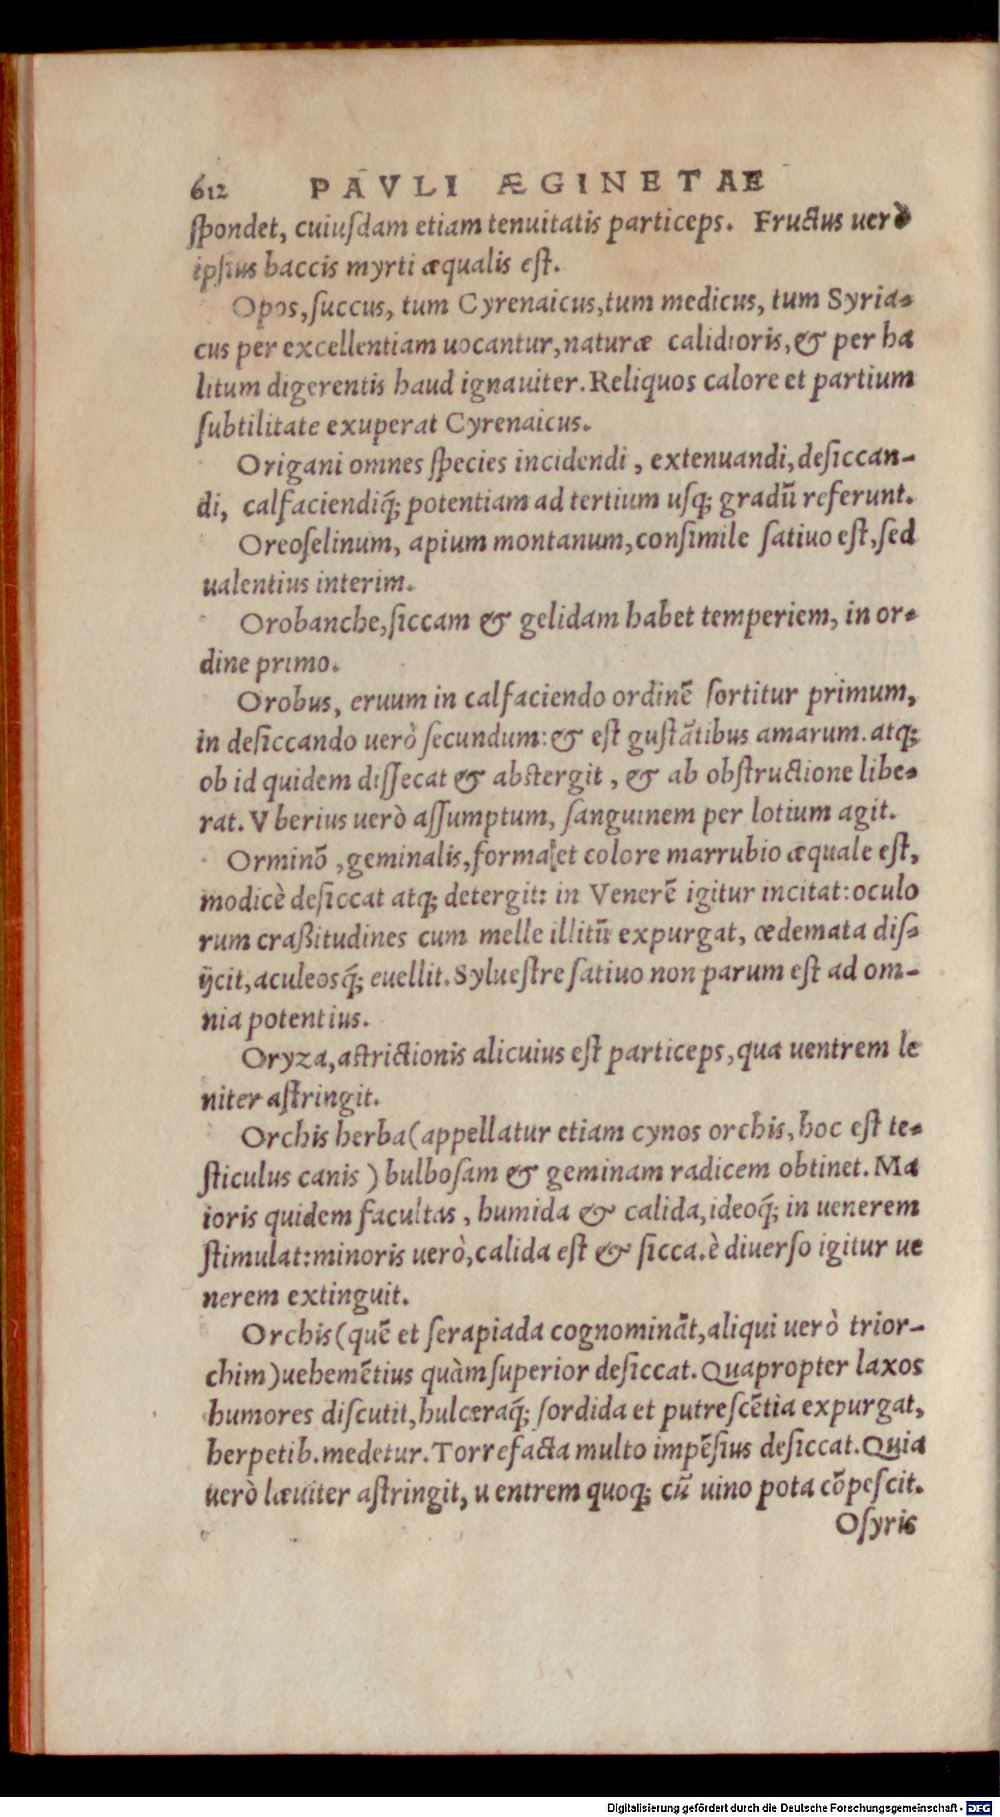 612 PAVLI ÆGINETAE
ſpondet, cuiuſdam etiam tenuitatis particeps. Fructus uerò
ipſius baccis myrti æqualis eſt.
Opos, ſuccus, tum Cyrenaicus, tum medicus, tum Syria-
cus per excellentiam uocantur, naturæ calidioris, & per ha
litum digerentis haud ignauiter. Reliquos calore et partium
ſubtilitate exuperat Cyrenaicus.
Origani omnes ſpecies incidendi, extenuandi, deſiccan-
di, calfaciendiq́; potentiam ad tertium uſq; gradū referunt.
Oreoſelinum, apium montanum, conſimile ſatiuo eſt, ſed
ualentius interim.
Orobanche, ſiccam & gelidam habet temperiem, in or-
dine primo.
Orobus, eruum in calfaciendo ordinē ſortitur primum,
in deſiccando uerò ſecundum: & eſt guſtātibus amarum. atq;
ob id quidem diſſecat & abſtergit, & ab obſtructione libe-
rat. Vberius uerò aſſumptum, ſanguinem per lotium agit.
Orminō, geminalis, forma et colore marrubio æquale eſt,
modicè deſiccat atq; detergit: in Venerē igitur incitat: oculo
rum craßitudines cum melle illitū expurgat, œdemata diſ-
ijcit, aculeosq́; euellit. Sylueſtre ſatiuo non parum eſt ad om-
nia potentius.
Oryza, aſtrictionis alicuius eſt particeps, qua uentrem le
niter aſtringit.
Orchis herba (appellatur etiam cynos orchis, hoc eſt te-
ſticulus canis) bulboſam & geminam radicem obtinet. Ma
ioris quidem facultas, humida & calida, ideoq́; in uenerem
ſtimulat: minoris uerò, calida eſt & ſicca. è diuerſo igitur ue
nerem extinguit.
Orchis (quē et ſerapiada cognomināt, aliqui uerò trior-
chim) uehemētius quàm ſuperior deſiccat. Quapropter laxos
humores diſcutit, hulceraq́; ſordida et putreſcētia expurgat,
herpetib. medetur. Torrefacta multo impēſius deſiccat. Quia
uerò læuiter aſtringit, uentrem quoq; cū uino pota cōpeſcit.
Oſyris
Digitalisierung gefördert durch die Deutsche Forschungsgemeinschaft - DFG